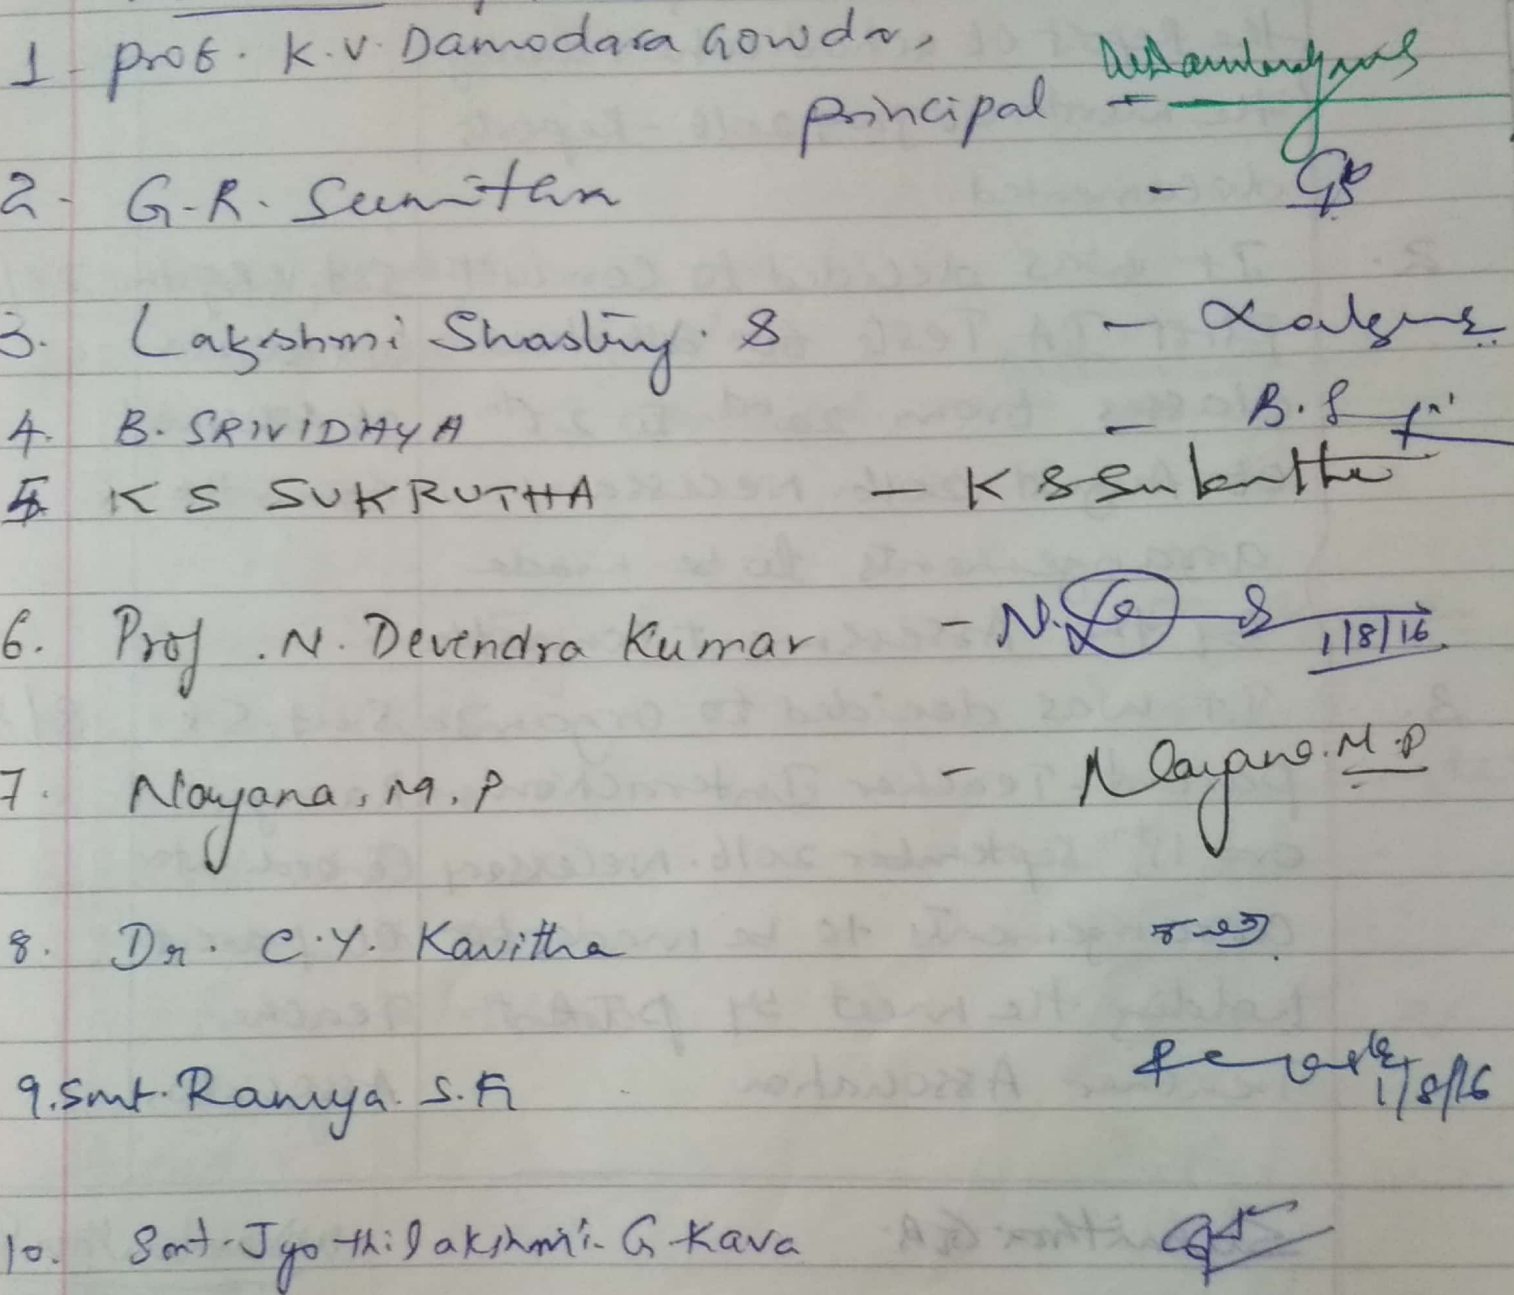 1 - Prof. K.V. Damodara Gowda,
Principal -
2 - G.R. Sumithra -
3. Lakshmi Shastry. S -
4. B. SRIVIDHYA - B.S
5 K S SUKRUTHA - K S Sukrutha
6. Prof. N. Devendra Kumar - N. 1/8/16
7. Nayana, M.P - Nayana.M.P
8. Dr. C.Y. Kavitha
9. Smt. Ramya. S.R 1/8/16
10. Smt. Jyothilakshmi. G. Kava